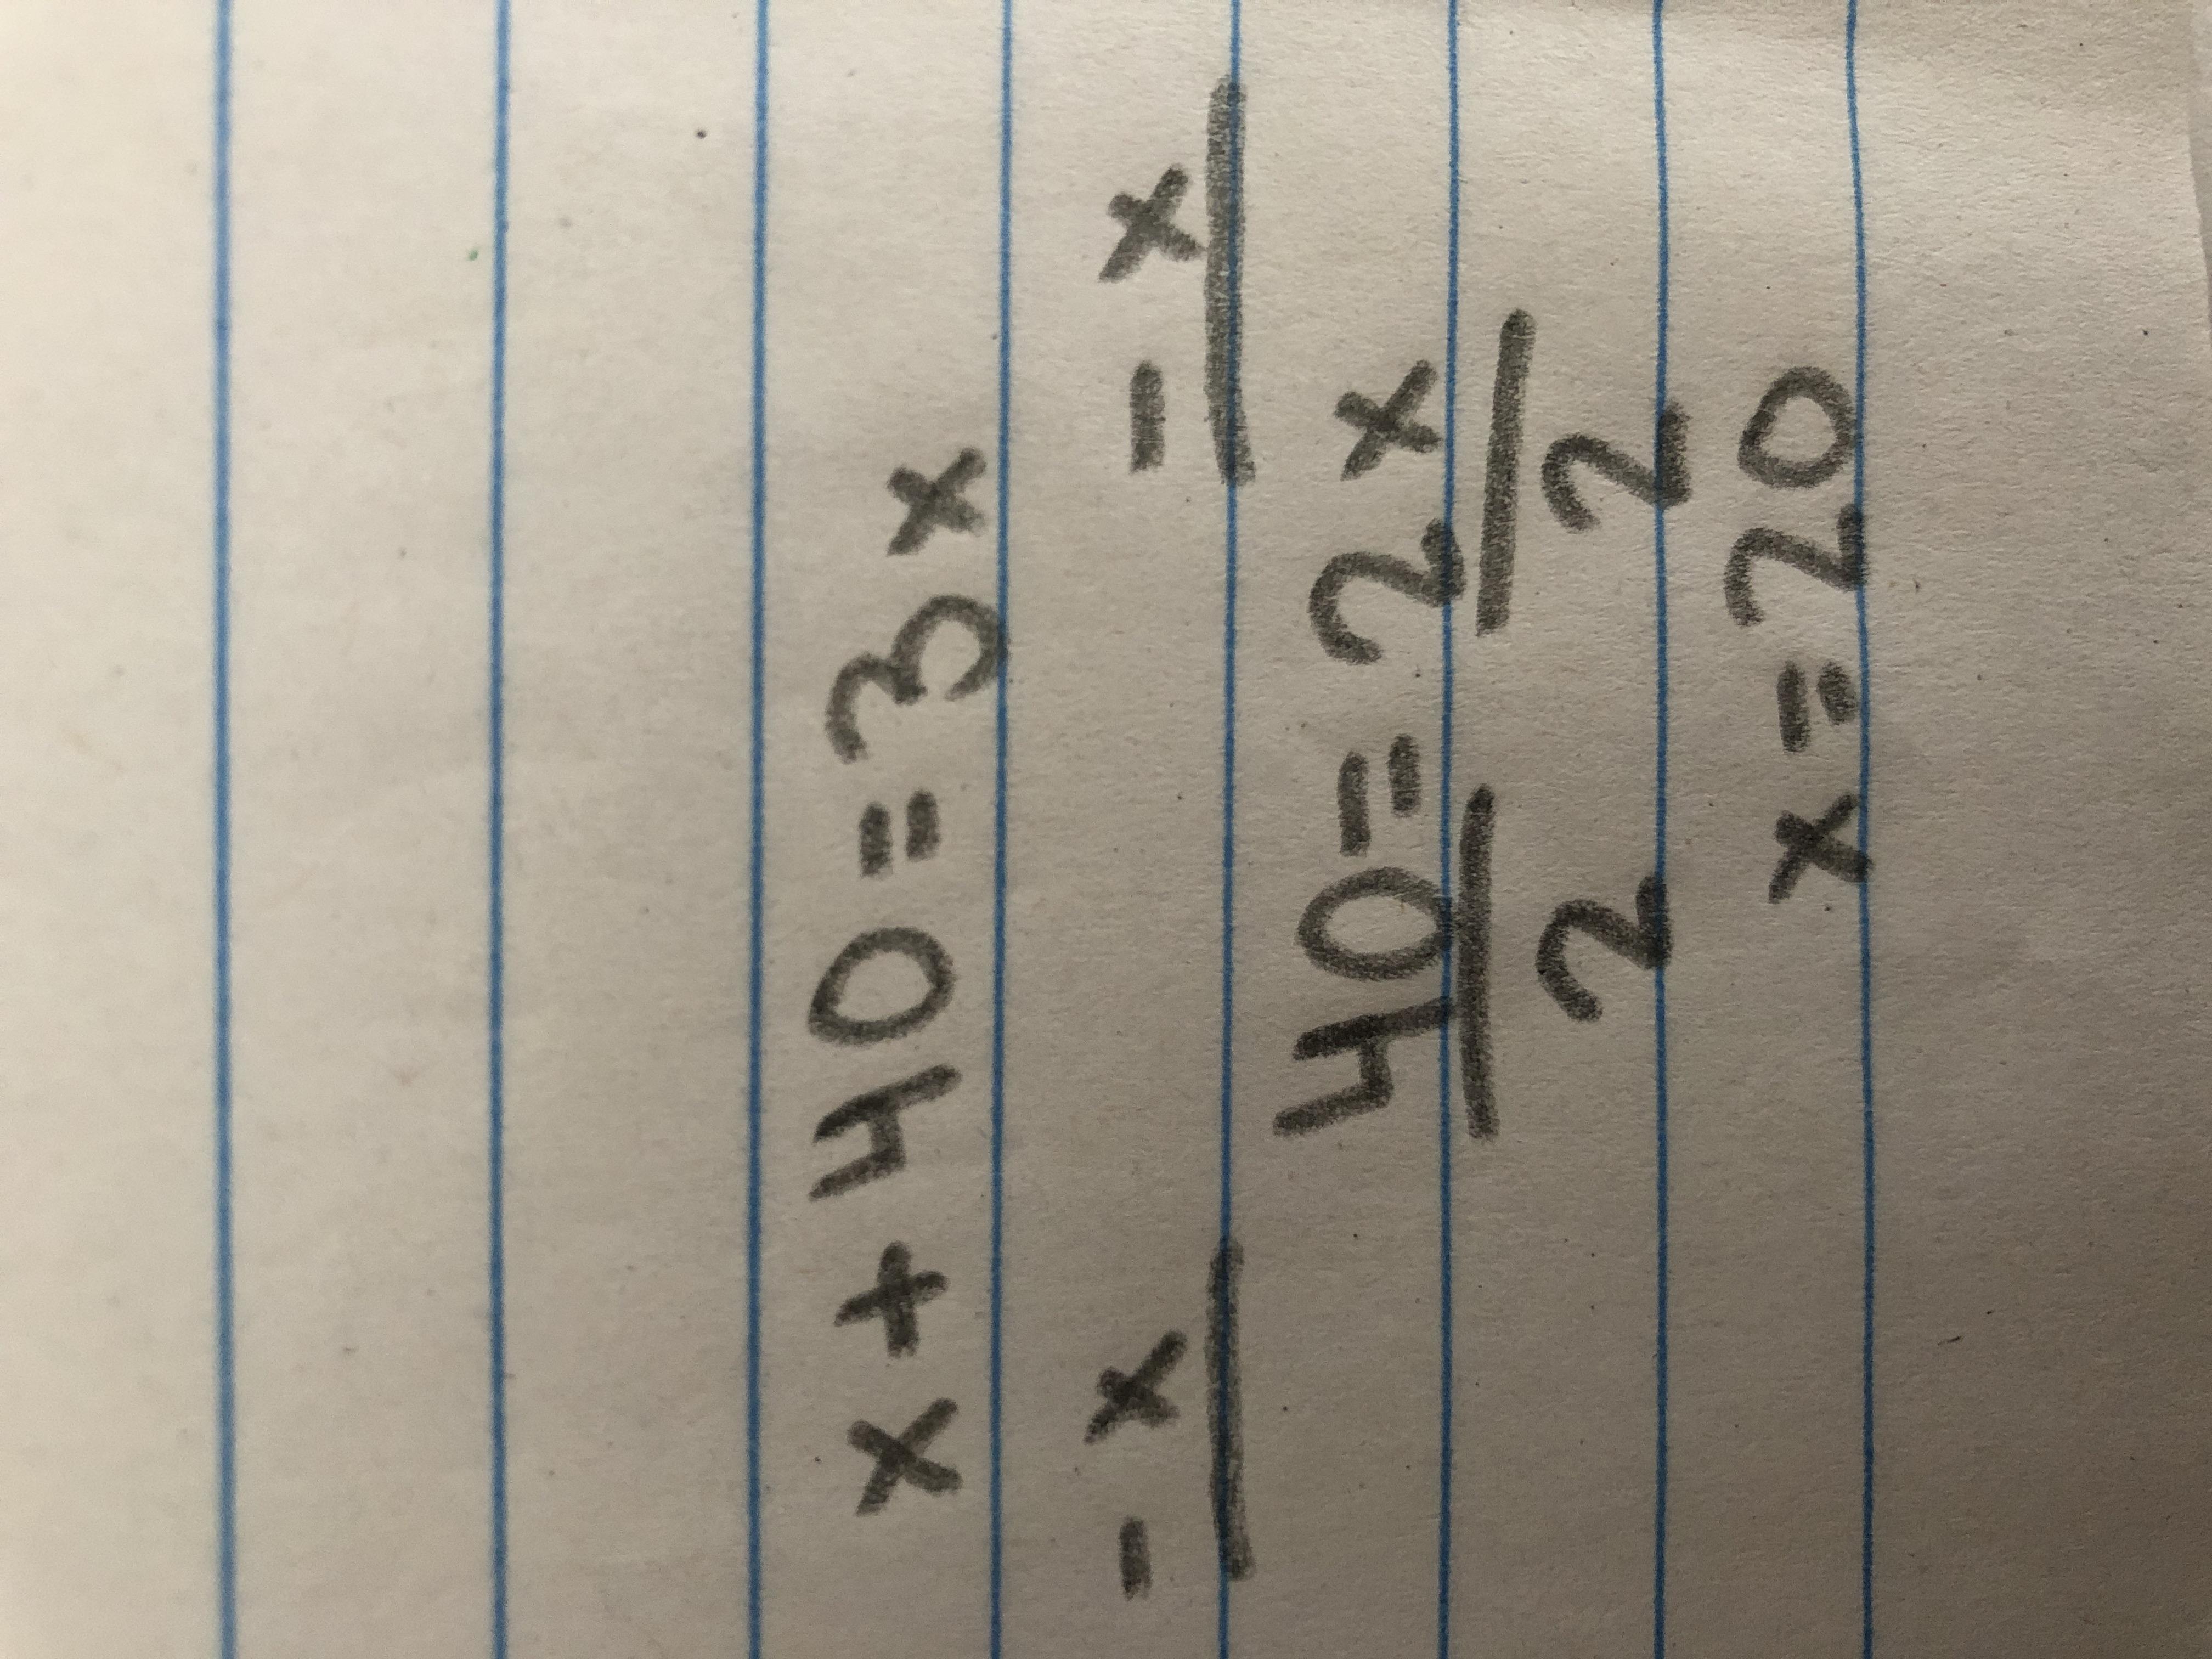 x + 40 = 3x
- x - x
40 = 2x
2 2
x = 20